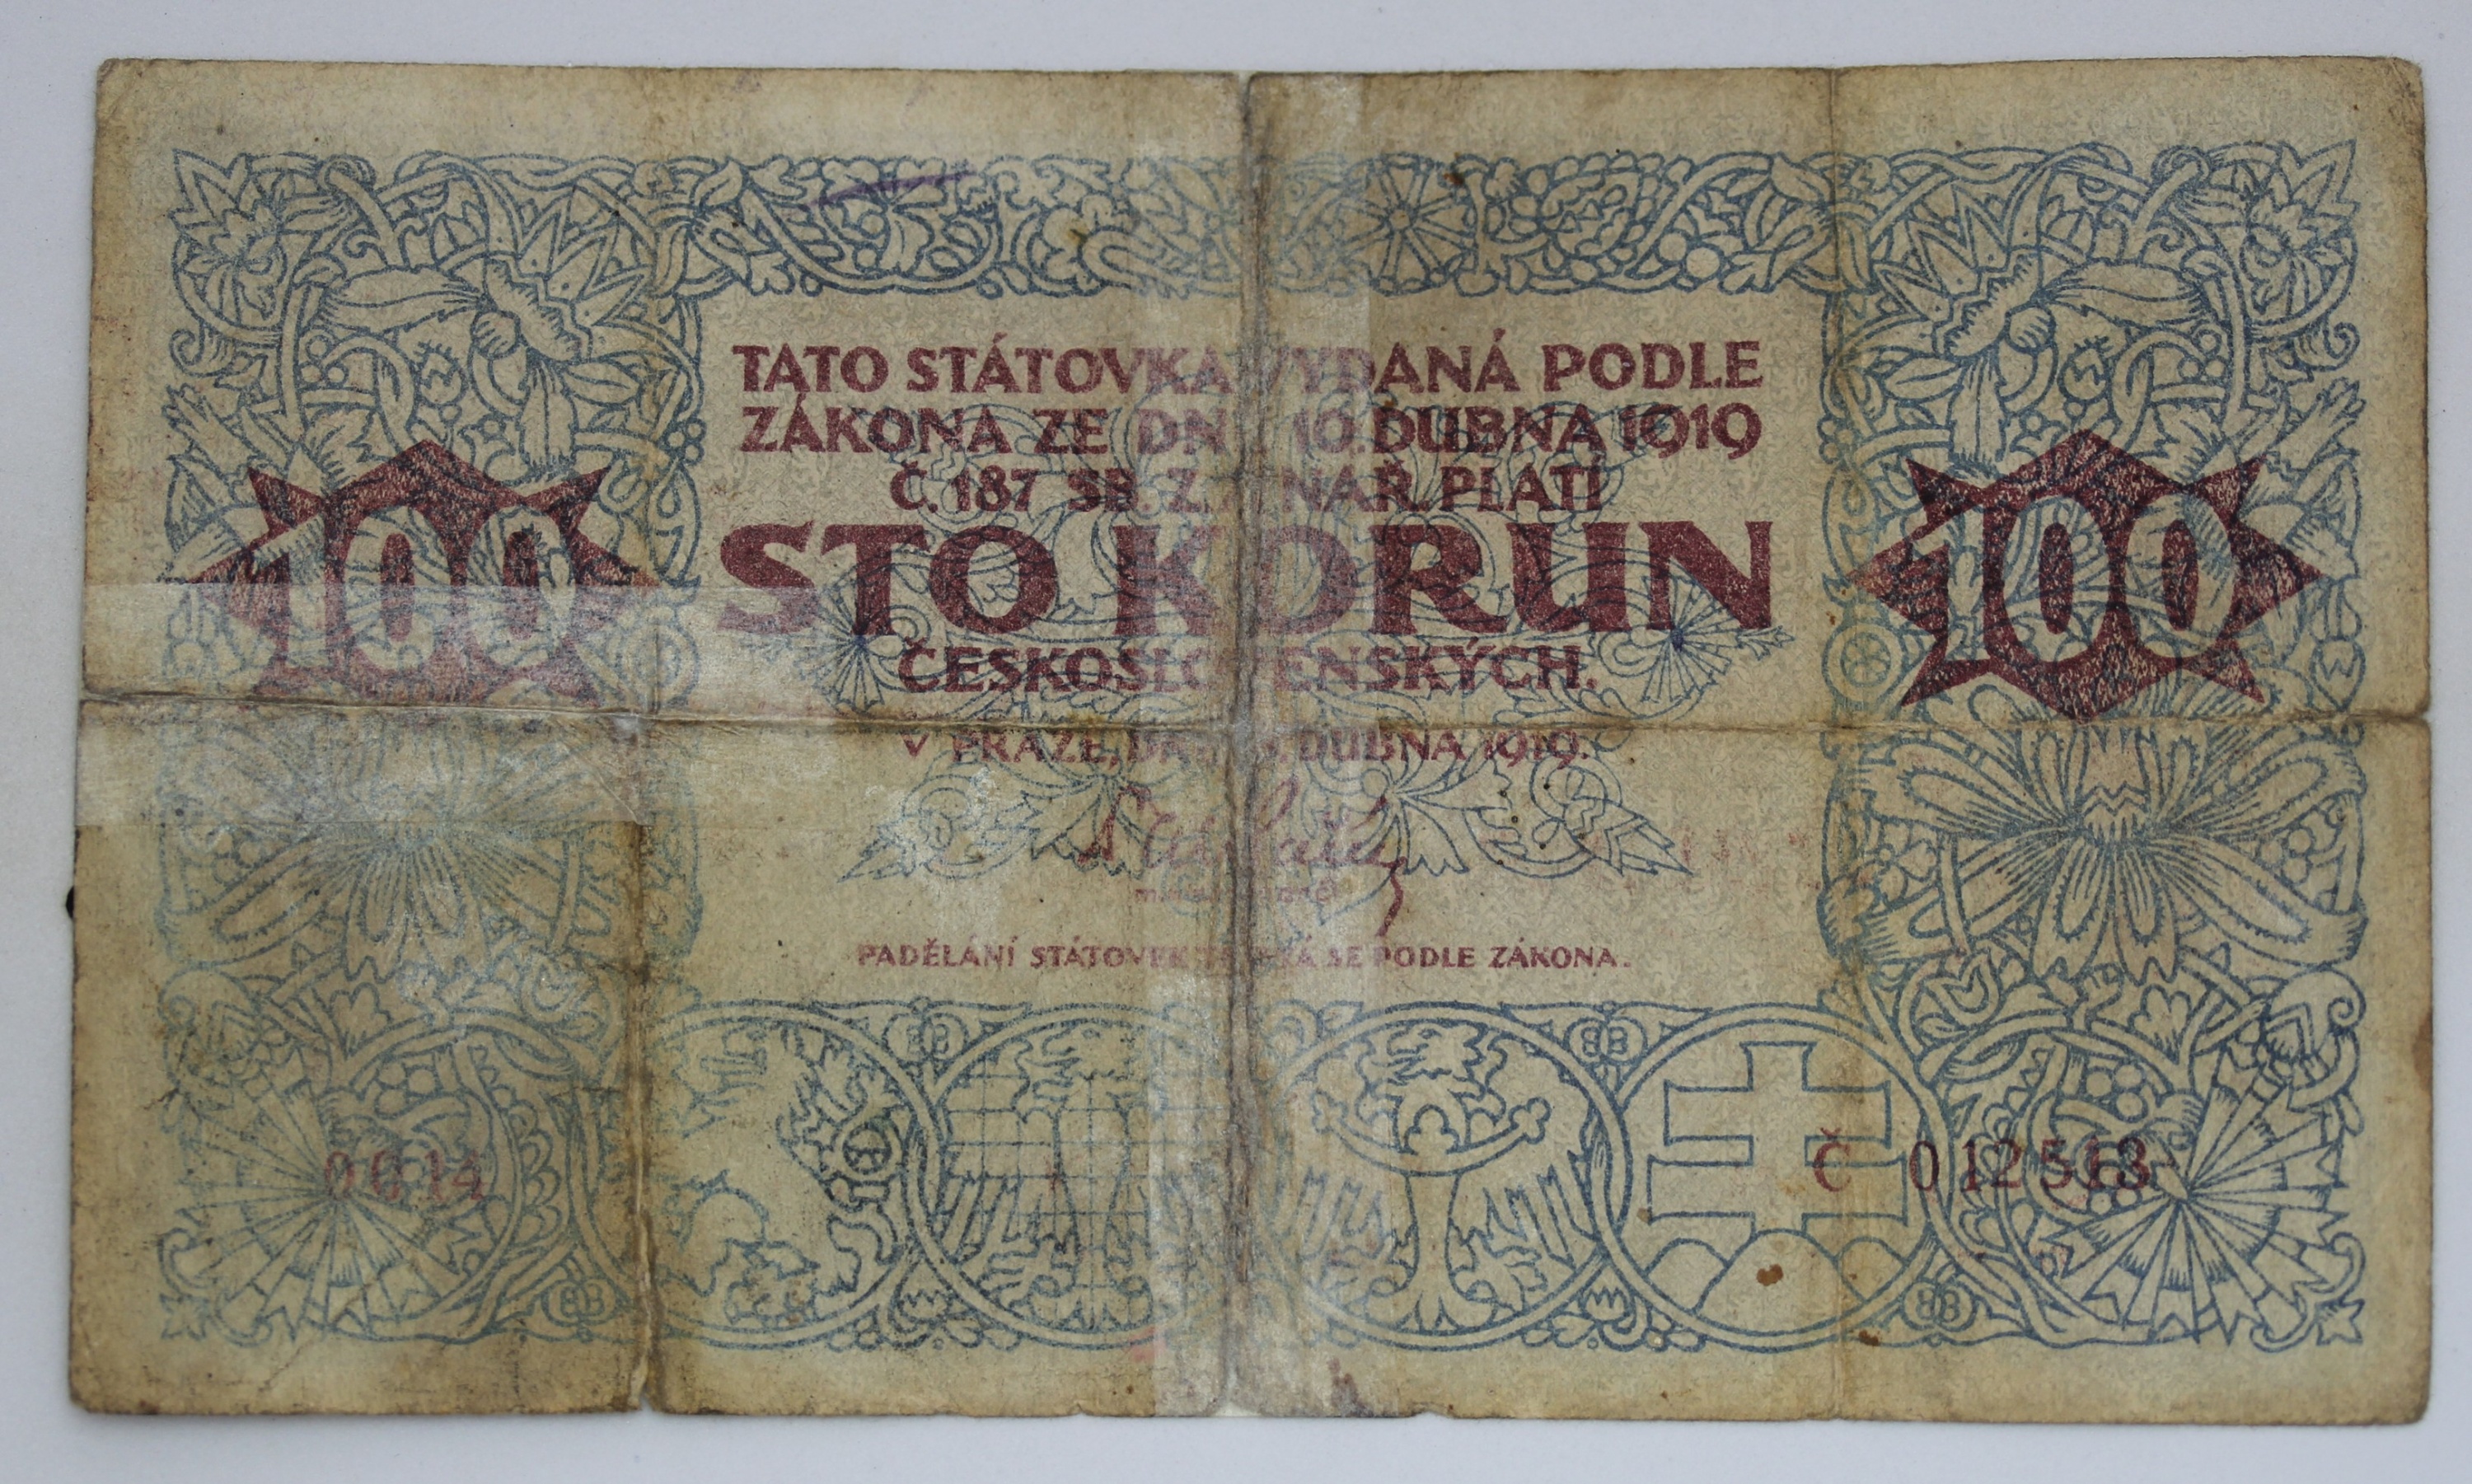 TATO STÁTOVKA VYDANÁ PODLE
ZÁKONA ZE DNE 10. DUBNA 1919
Č. 187 SB. Z. A NAŘ. PLATÍ
STO KORUN
ČESKOSLOVENSKÝCH.
100
100
V PRAZE, DUBNA 1919.
PADĚLÁNÍ STÁTOVEK TRESTÁ SE PODLE ZÁKONA.
0614 Č 012513